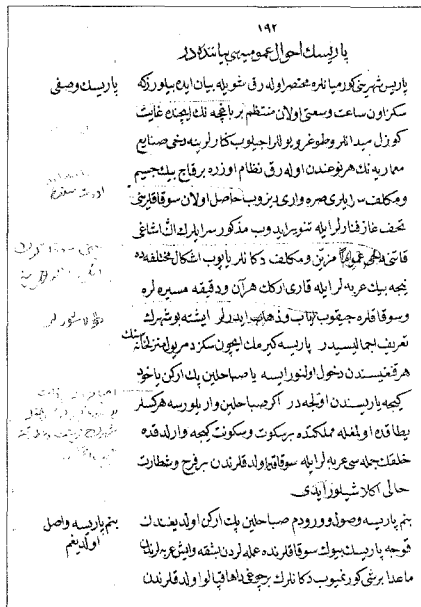 ١٩٢
پاریسك احوال عمومیه‌سی بیاننده در
پاریسك وصفی
پاریس شهرینی كورمیانلره مختصر اوله‌رق شویله بیان ایده بیلورزكه
سكز اون ساعت وسعتی اولان منتظم بر باغچه‌نك ایچنده غایت
كوزل میدانلر و طوغری یوللر آچیلوب كنارلرینه دخی صنایع
معماریه‌نك هر نوعندن اوله‌رق نظام اوزره برقاچ بیك جسیم
و مكلف سرایلری صره واری دیزوب حاصل اولان سوقاقلرینی
تحف غاز فنارلر ایله تنویر ایدوب مذكور سرایلرك اڭ اشاغی
قاتنی مزین و مكلف دكانلر یاپوب اشكال مختلفه‌ده
نیجه بیك عربه‌لر ایله قاری اركك هر آن و دقیقه مسیره‌لره
و سوقاقلره چیقوب ایاب و ذهاب ایدرلر ایشته بو شهرك
تعریف اجمالیسیدر پاریسه كیرمك ایچون سكز دمریول منزلخانه‌سنك
هر قنغیسندن دخول اولنور ایسه یا صباحلین پك اركن یاخود
كیجه یاریسندن اولجه‌در اكر صباحلین واریلورسه هركسلر
یطاقده اولمغله مملكتده بر سكوت و سكونت كیجه وارلدقده
خلقك جمله‌سی عربه‌لر ایله سوقاقلرده اولدقلرندن بر فرح و شطارت
حالی اكلاشیلور ایدی
بنم پاریسه واصل اولدیغم
بنم پاریسه وصول و ورودم صباحلین پك اركن اولدیغندن
قوجه پاریسك بیوك سوقاقلرنده عمله‌لردن بشقه و ایش عربه‌لرندن
ماعدا بر شی كورنمیوب دكانلرك بر چوغی داها قپالو اولدقلرندن